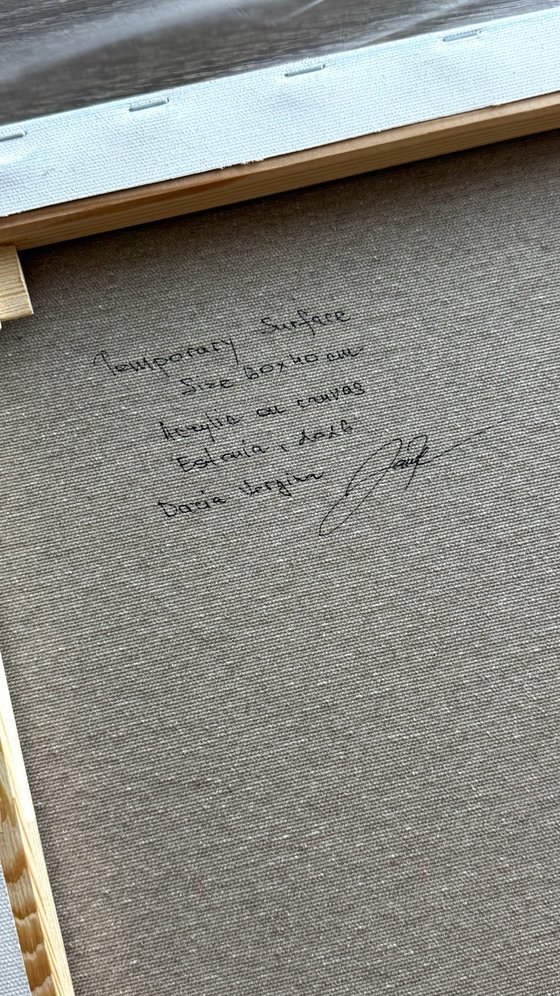 Temporary Surface
Size 80x40 cm
Acrylic on canvas
Estonia, 2026
Daria Vergina